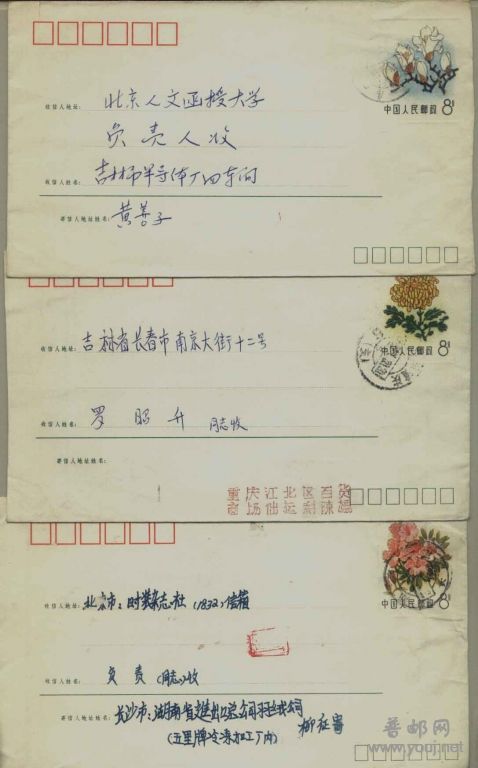 中国人民邮政 8分
收信人地址:
北京人文函授大学
负责人收
收信人姓名:
吉林市半导体厂四车间
寄信人地址姓名:
黄善子
中国人民邮政 8分
收信人地址: 吉林省长春市南京大街十二号
收信人姓名: 罗昭升 同志收
寄信人地址姓名:
重庆江北区百货
商场
中国人民邮政 8分
收信人地址: 北京市:时装杂志社(1832)信箱
收信人姓名: 负责(同志)收
寄信人地址姓名: 长沙市:湖南省
(五里牌冷冻加工厂内)
普邮网
www.youj.net